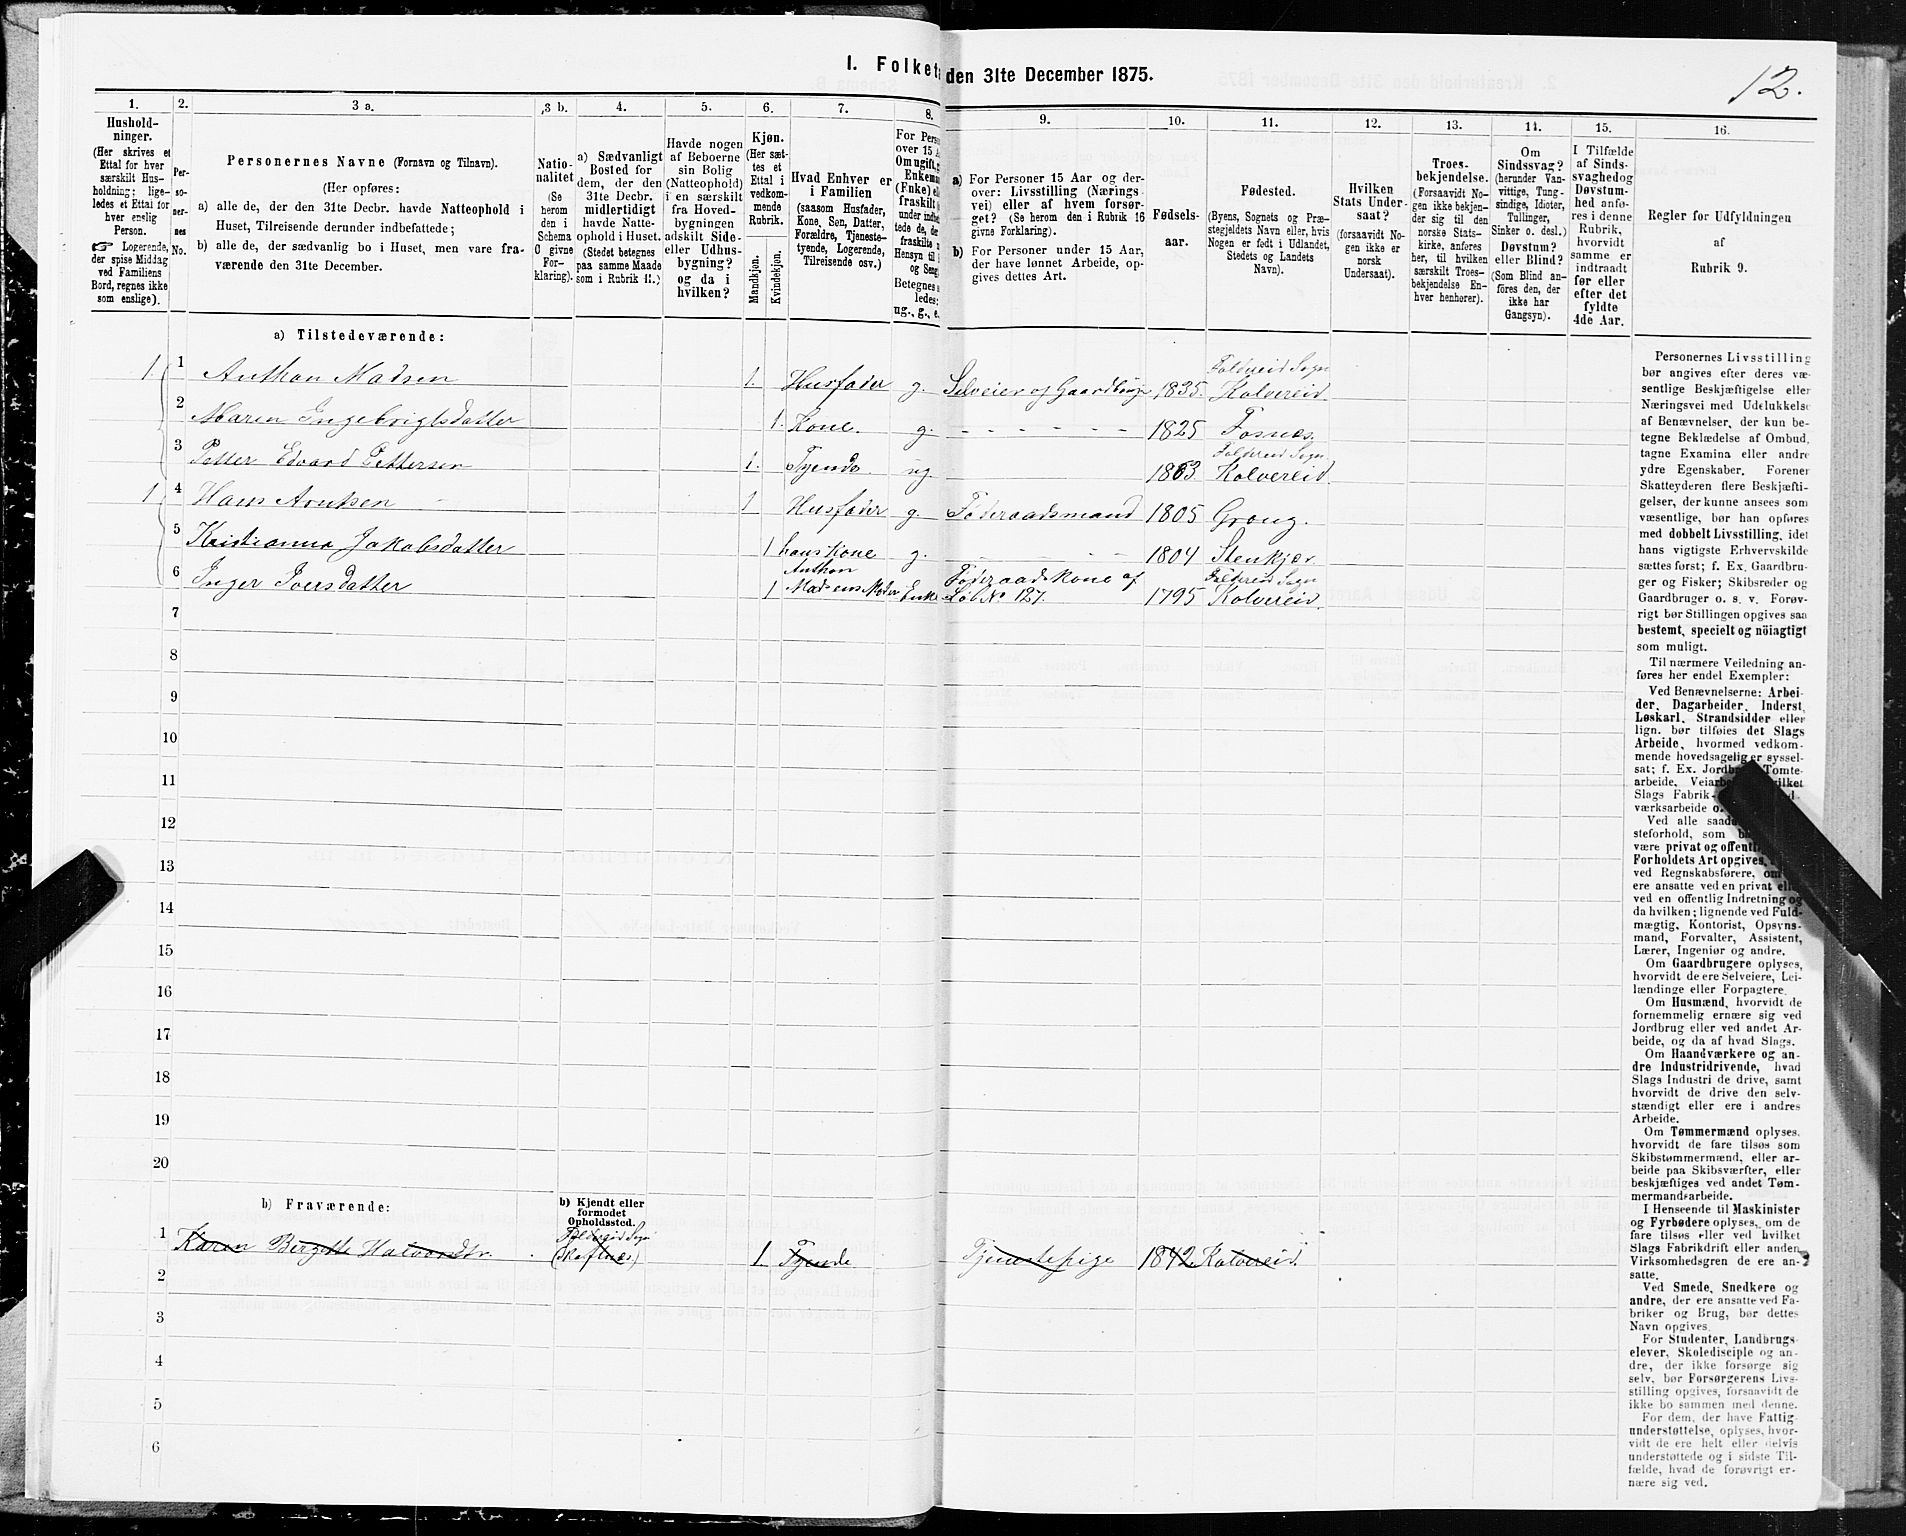 I. Folket
den 31te December 1875.
12.
1.
2.
3 a.
3 b.
4.
5.
6.
7.
8.
9.
10.
11.
12.
13.
14.
15.
16.
Hushold-
ninger.
(Her skrives et
Ettal for hver
særskilt Hus-
holdning; lige-
ledes et Ettal for
hver enslig
Person.
☞ Logerende,
der spise Middag
ved Familiens
Bord, regnes ikke
som enslige).
Per-
so-
ner-
nes
No.
Personernes Navne (Fornavn og Tilnavn).
(Her opføres:
a) alle de, der den 31te Decbr. havde Natteophold i
Huset, Tilreisende derunder indbefattede;
b) alle de, der sædvanlig bo i Huset, men vare fra-
værende den 31te December.
Natio-
nalitet
(Se
herom
den i
Schema
O givne
For-
klaring).
a) Sædvanligt
Bosted for
dem, der den
31te Decbr.
midlertidigt
havde Natte-
ophold i Huset.
(Stedet betegnes
paa samme Maade
som i Rubrik 11.)
Havde nogen
af Beboerne
sin Bolig
(Natteophold)
i en særskilt
fra Hoved-
bygningen
adskilt Side-
eller Udhus-
bygning?
og da i
hvilken?
Kjøn.
(Her sæt-
tes et
Ettal i
vedkom-
mende
Rubrik.
Mandkjøn.
Kvindekjøn.
Hvad Enhver er
i Familien
(saasom Husfader,
Kone, Søn, Datter,
Forældre, Tjeneste-
tyende, Logerende,
Tilreisende osv.)
For Pers
over 15 A
Om ugift,
Enkem
(Fnke) el
fraskilt
under indbe
tede de, d
fraskilte
Hensyn til
og Seng
Betegnes s
ledes:
ug., g., e.
a) For Personer 15 Aar og der-
over: Livsstilling (Nærings-
vei) eller af hvem forsør-
get? (Se herom den i Rubrik 16
givne Forklaring).
b) For Personer under 15 Aar,
der have lønnet Arbeide, op-
gives dettes Art.
Fødsels-
aar.
Fødested.
(Byens, Sognets og Præ-
stegjeldets Navn eller, hvis
Nogen er født i Udlandet,
Stedets og Landets
Navn).
Hvilken
Stats Under-
saat?
(forsaavidt No-
gen ikke er
norsk
Undersaat).
Troes-
bekjendelse.
(Forsaavidt No-
gen ikke bekjen-
der sig til den
norske Stats-
kirke, anføres
her, til hvilken
særskilt Troes-
bekjendelse En-
hver henhører).
Om
Sindssvag?
(herunder Van-
vittige, Tung-
sindige, Idioter,
Tullinger,
Sinker o. desl.)
Døvstum?
eller Blind?
(Som Blind an-
føres den, der
ikke har
Gangsyn).
I Tilfælde
af Sinds-
svaghed og
Døvstum-
hed anfø-
res i denne
Rubrik,
hvorvidt
samme er
indtraadt
før eller
efter det
fyldte
4de Aar.
Regler for Udfyldningen
af
Rubrik 9.
a) Tilstedeværende:
1 1 Anthon Madsen 1. Husfader g. Selveier og Gaardbruger 1835. Foldereid Sogn Kolvereid.
2 Maren Ingebrigtsdatter 1. Kone. g. - - - - - - 1825 Fosnes.
3 Petter Edvard Pettersen 1. Tyende ug 1863. Foldereid Sogn Kolvereid.
1 4 Hans Arntsen 1 Husfader g. Føderaadsmand 1805 Grong.
5 Kristianna Jakobsdatter 1 hans Kone g. - - - - 1804 Stenkjær
6 Inger Iversdatter 1 Anthon Madsens Moder Enke Føderaadskone af Løb No 127. 1795 Foldereid Sogn Kolvereid.
7
8
9
10
11
12
13
14
15
16
17
18
19
20
b) Fraværende:
b) Kjendt eller
formodet
Opholdssted.
1 Karen Bergitte Halvorsdtr. Foldereid Sogn 1 Tyende Tjenestepige 1842 Kolvereid.
2
3
4
5
6
Personernes Livsstilling
bør angives efter deres væ-
sentlige Beskjæftigelse eller
Næringsvei med Udelukkelse
af Benævnelser, der kun be-
tegne Beklædelse af Ombud,
tagne Examina eller andre
ydre Egenskaber. Forener
Skatteyderen flere Beskjæfti-
gelser, der kunne ansees som
væsentlige, bør han opføres
med dobbelt Livsstilling, idet
hans vigtigste Erhvervskilde
sættes først; f. Ex. Gaardbru-
ger og Fisker; Skibsreder og
Gaardbruger o. s. v. Forøv-
rigt bør Stillingen opgives saa
bestemt, specielt og nöiagtigt
som muligt.
Til nærmere Veiledning an-
føres her endel Exempler:
Ved Benævnelserne: Arbei-
der, Dagarbeider, Inderst,
Løskarl, Strandsidder eller
lign. bør tilføies det Slags
Arbeide, hvormed vedkom-
mende hovedsagelig er syssel-
sat; f. Ex. Jordbr Tomte-
arbeide, Veiarbe vilket
Slags Fabrik-
værksarbeide o.
Ved alle saad
steforhold, som
være privat og offentl
Forholdets Art opgives,
ved Regnskabsførere, om
ere ansatte ved en privat ell
ved en offentlig Indretning og
da hvilken; lignende ved Fuld-
mægtig, Kontorist, Opsyns-
mand, Forvalter, Assistent,
Lærer, Ingeniør og andre.
Om Gaardbrugere oplyses,
hvorvidt de ere Selveiere, Lei-
lændinge eller Forpagtere.
Om Husmænd, hvorvidt de
fornemmelig ernære sig ved
Jordbrug eller ved andet Ar-
beide, og da af hvad Slags.
Om Haandværkere og an-
dre Industridrivende, hvad
Slags Industri de drive, samt
hvorvidt de drive den selv-
stændigt eller ere i andres
Arbeide.
Om Tømmermænd oplyses,
hvorvidt de fare tilsøs som
Skibstømmermænd, eller ar-
beide paa Skibsværfter, eller
beskjæftiges ved andet Tøm-
mermandsarbeide.
I Henseende til Maskinister
og Fyrbødere oplyses, om de
fare tilsøs eller ved hvilket
Slags Fabrikdrift eller anden
Virksomhedsgren de ere an-
satte.
Ved Smede, Snedkere og
andre, der ere ansatte ved Fa-
briker og Brug, bør dettes
Navn opgives.
For Studenter, Landbrugs-
elever, Skoledisciple og an-
dre, der ikke forsørge sig
selv, bør Forsørgerens Livs-
stilling opgives, forsaavidt de
ikke bo sammen med denne.
For dem, der have Fattig-
understøttelse, oplyses, hvor-
vidt de ere helt eller delvis
understøttede og i sidste Til-
fælde, hvad de forøvrigt er-
nære sig ved.